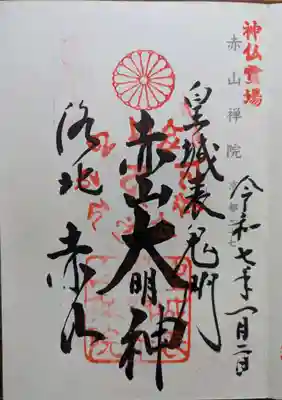 神仏霊場
赤山禅院
京都二七
令和七年一月二日
皇城表鬼門
赤山大明神
洛北 赤山